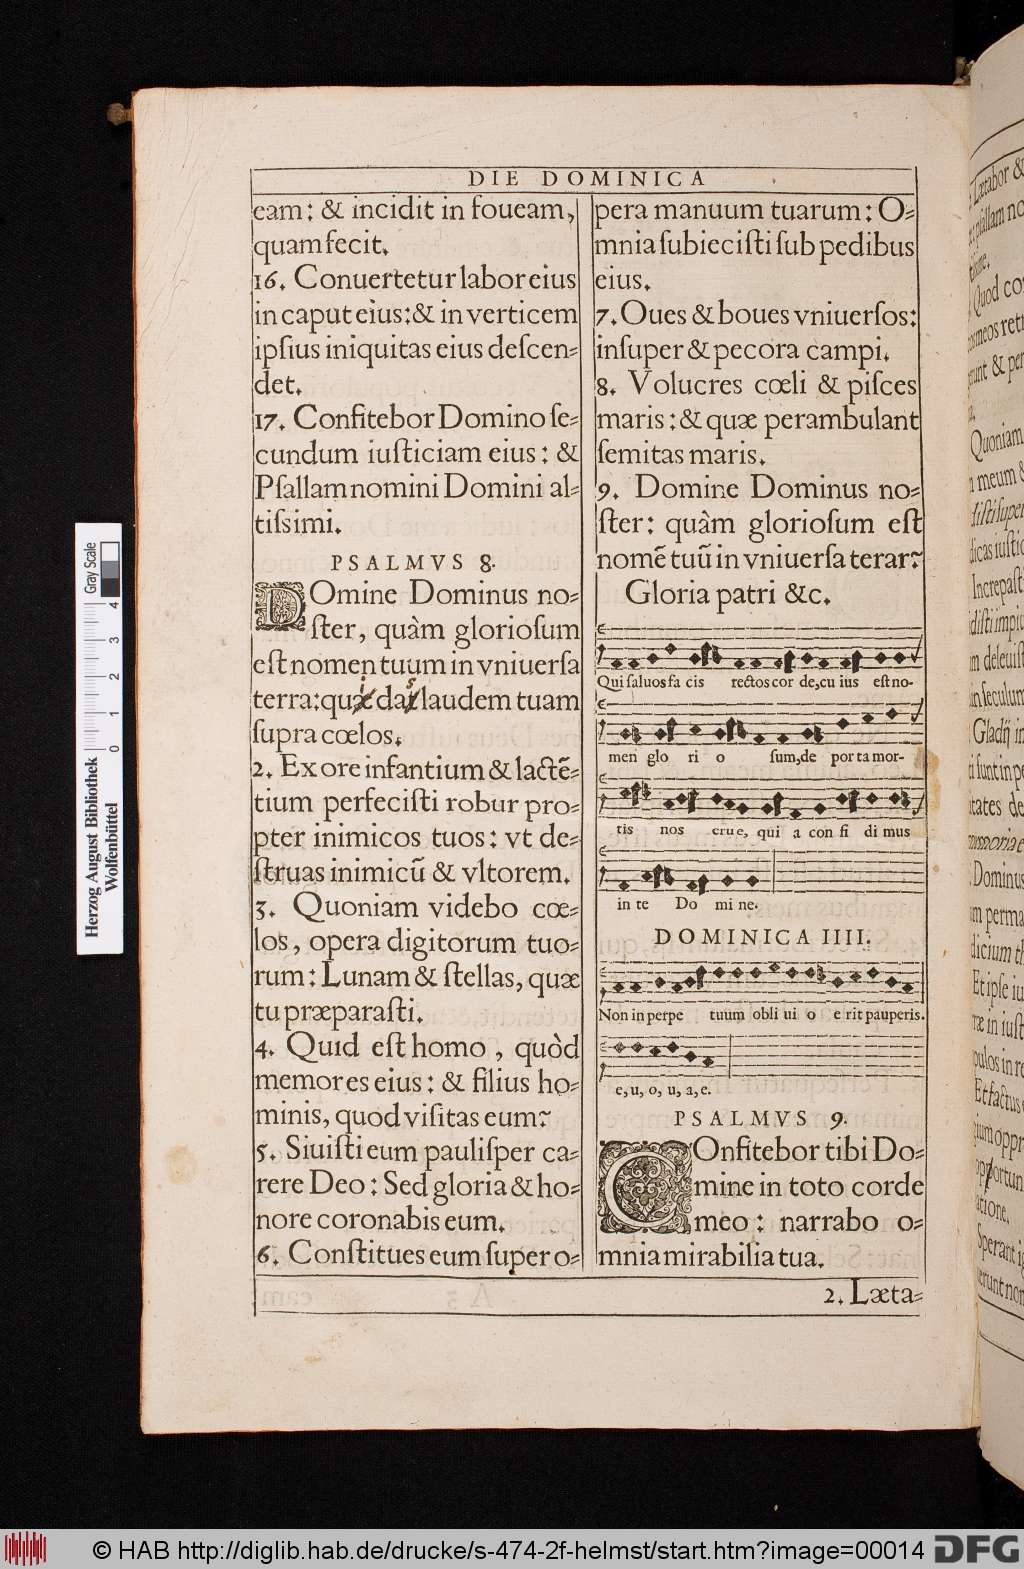 DIE DOMINICA
eam: & incidit in foueam,
quam fecit.
16. Conuertetur labor eius
in caput eius: & in verticem
ipſius iniquitas eius deſcen=
det.
17. Confitebor Domino ſe=
cundum iuſticiam eius: &
Pſallam nomini Domini al=
tiſsimi.
PSALMVS 8.
DOmine Dominus no=
ſter, quàm glorioſum
eſt nomen tuum in vniuerſa
terra: laudem tuam
ſupra cœlos.
2. Ex ore infantium & lactē=
tium perfeciſti robur pro=
pter inimicos tuos: vt de=
ſtruas inimicū & vltorem.
3. Quoniam videbo cœ=
los, opera digitorum tuo=
rum: Lunam & ſtellas, quæ
tu præparaſti.
4. Quid eſt homo, quòd
memor es eius: & filius ho=
minis, quod viſitas eum?
5. Siuiſti eum pauliſper ca=
rere Deo: Sed gloria & ho=
nore coronabis eum.
6. Conſtitues eum ſuper o=
pera manuum tuarum: O=
mnia ſubieciſti ſub pedibus
eius.
7. Oues & boues vniuerſos:
inſuper & pecora campi.
8. Volucres cœli & piſces
maris: & quæ perambulant
ſemitas maris.
9. Domine Dominus no=
ſter: quàm glorioſum eſt
nomē tuū in vniuerſa terar?
Gloria patri &c.
Qui ſaluos fa cis rectos cor de, cu ius eſt no-
men glo ri o ſum, de por ta mor-
tis nos erue, qui a con fi di mus
in te Do mi ne.
DOMINICA IIII.
Non in perpe tuum obli ui o e rit pauperis.
e, u, o, u, a, e.
PSALMVS 9.
COnfitebor tibi Do=
mine in toto corde
meo: narrabo o=
mnia mirabilia tua.
2. Læta=
Herzog August Bibliothek
Wolfenbüttel
0 1 2 3 4
Gray Scale
© HAB http://diglib.hab.de/drucke/s-474-2f-helmst/start.htm?image=00014
DFG